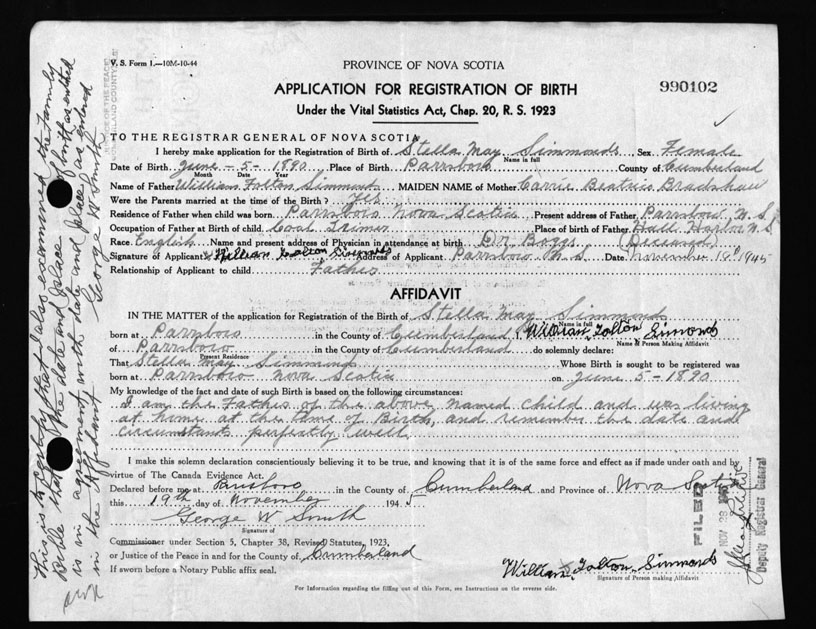 V. S. Form 1.—10M-10-44
PROVINCE OF NOVA SCOTIA
APPLICATION FOR REGISTRATION OF BIRTH
990102
Under the Vital Statistics Act, Chap. 20, R. S. 1923
TO THE REGISTRAR GENERAL OF NOVA SCOTIA
I hereby make application for the Registration of Birth of Stella May Simmonds, Sex Female
Name in full
Date of Birth June - 5 - 1890 Place of Birth Parrsboro County of Cumberland
Month Date Year
Name of Father William Tolton Simmonds MAIDEN NAME of Mother Carrie Beatrice Bradshaw
Were the Parents married at the time of the Birth? Yes
Residence of Father when child was born Parrsboro Nova Scotia Present address of Father Parrsboro N.S.
Occupation of Father at Birth of child Coal Trimer Place of birth of Father Hall Harbor N.S.
Race English Name and present address of Physician in attendance at birth Dr Boggs (Deceased)
Signature of Applicant William Tolton Simonds Address of Applicant Parrsboro N.S. Date November 19 1945
Relationship of Applicant to child Father
AFFIDAVIT
IN THE MATTER of the application for Registration of the Birth of Stella May Simmonds
Name in full
born at Parrsboro in the County of Cumberland I, William Tolton Simonds
Name of Person Making Affidavit
of Parrsboro in the County of Cumberland do solemnly declare:
Present Residence
That Stella May Simmonds Whose Birth is sought to be registered was
born at Parrsboro Nova Scotia on June 5 - 1890
My knowledge of the fact and date of such Birth is based on the following circumstances:
I am the Father of the above named child and was living
at home at the time of Birth, and remember the date and
circumstants perfectly well
I make this solemn declaration conscientiously believing it to be true, and knowing that it is of the same force and effect as if made under oath and by
virtue of The Canada Evidence Act.
Declared before me at Parrsboro in the County of Cumberland and Province of Nova Scotia
this 19th day of November 194
George W Smith
Signature of
Commissioner under Section 5, Chapter 38, Revised Statutes, 1923,
or Justice of the Peace in and for the County of Cumberland
If sworn before a Notary Public affix seal.
William Tolton Simmonds
Signature of Person making Affidavit
For Information regarding the filling out of this Form, see Instructions on the reverse side.
This is to certify that I also examined the Family
Bible that the date and place of birth as entered
is in agreement with date and place as entered
in the Affidavit
George W Smith
FILED
NOV 28
Deputy Registrar General